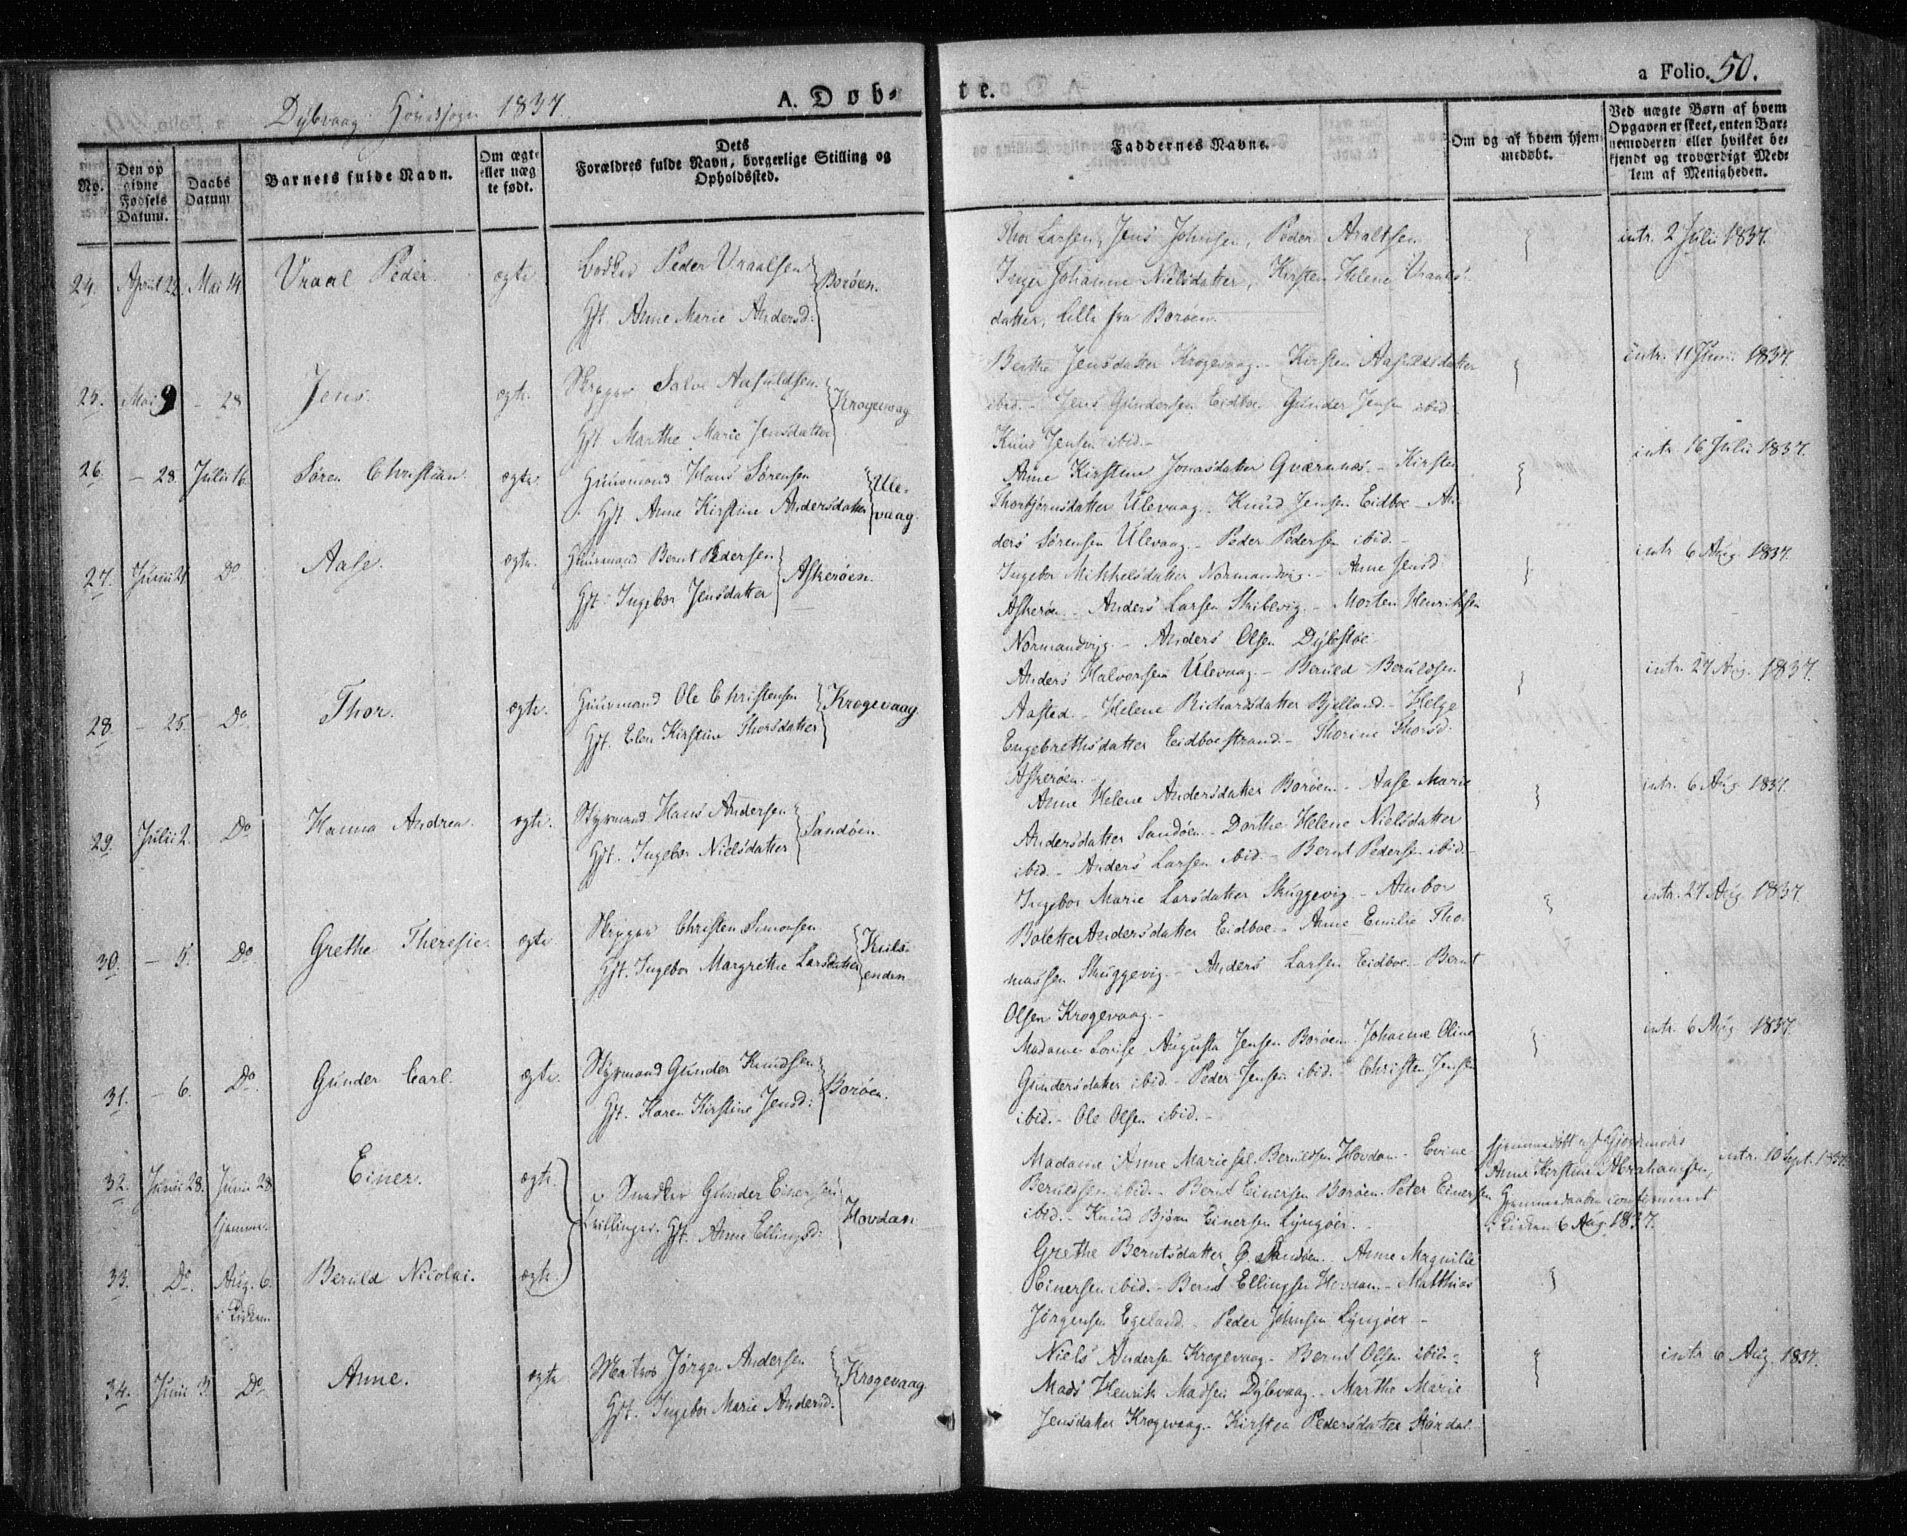 Dybvaag Hovedsogn 1837.
A. Døb-
te.
a Folio. 50.
No.
Den op
givne
Fødsels
Datum.
Daabs
Datum
Barnets fulde Navn.
Om ægte
eller uæg
te født.
Dets
Forældres fulde Navn, borgerlige Stilling og
Opholdssted.
Faddernes Navne.
Om og af hvem hjem-
medøbt.
Ved uægte Børn af hvem
Opgaven er skeet, enten Bar-
nemoderen eller hvilket be-
kjendt og troværdigt Med-
lem af Menigheden.
24. April 22. Mai 14 Vraal Peder. ægte
Peder Vraalsen
Gft. Anne Marie Andersd:
Borøen.
Thor Larsen, Jens Johnsen, Peder
Inger Johanne Nielsdatter, Kirsten Helene Vraals-
datter, fra Borøen.
intr. 2 Julii 1837.
25. Mai 9 - 28 Jens ægte.
Salve Aasuldsen
Gft. Marthe Marie Jensdatter
Krogevaag
Berthe Jensdatter Krogevaag - Kirsten Aasuldsdatter
ibid. - Jens Gundersen Eidboe - Gunder Jensen ibid
Knud Jensen ibid. -
intr. 11 Juni 1837.
26. - 28. Julii 16. Søren Christian ægte
Huusmand Hans Sørensen
Gft. Anne Kirstine Andersdatter
Ule-
vaag.
Anne Kirstine Jonasdatter Qværnnæs. - Kirsten
Thorbjørnsdatter Ulevaag. Knud Jensen Eidboe - An-
ders Sørensen Ulevaag - Peder Pedersen ibid. -
intr. 16 Julii 1837.
27. Junii 21. Do Aase. ægte.
Huusmand Bernt Pedersen
Gft. Ingebor Jensdatter
Askerøen.
Ingebor Mikkelsdatter Normandvig. - Anne Jensd
Askerøen - Anders Larsen Skibevig. - Morten Henriksen
Normandvig. - Anders Olsen
intr 6 Aug 1837.
28. - 25. Do. Thor. ægte.
Huusmand Ole Christensen
Gft. Elen Kirstine Thorsdatter
Krogevaag
Anders Halvorsen Ulevaag. - Beruld Beruldsen
Aasted. - Helene Richardsdatter Bjelland - Helge
Engebrethsdatter Eidboestrand - Thorine Thorsd.
Askerøen. -
intr. 27 Aug. 1837.
29. Julii 2. Do Hanna Andrea. ægte.
Styrmand Hans Andersen
Gft. Ingebor Nielsdatter
Sandøen.
Anne Helene Andersdatter Borøen. - Aase Marie
Andersdatter Sandøen - Dorthe Helene Nielsdatter
ibid. - Anders Larsen ibid - Bernt Pedersen ibid. -
intr. 6 Aug. 1837.
30. - 5. Do Grethe Theresie. ægte
Christen Simonsen
Gft. Ingebor Margrethe Larsdatter
Ingebor Marie Larsdatter Skuggevig - Ambor
Bolette Andersdatter Eidboe. - Anne Emilie Tho-
massen Skuggevig. - Anders Larsen Eidboe - Bernt
Olsen Krogevaag. -
intr. 27 Aug. 1837.
31. - 6. Do. Gunder Carl. ægte.
Styrmand Gunder Knudsen
Gft. Karen Kirstine Jensd:
Borøen.
Madame Lovise Augusta Jensen Borøen. Johanne Oline
Gundersdatter ibid - Peder Jensen ibid. - Christen Jensen
ibid. - Ole Olsen ibid. -
intr. 6 Aug. 1837.
32. Junii 28. Junii 28 hjemme. Einer. ægte.
Tvillinger.
Gunder Einersen
Gft. Anne Ellingsd:
Hovdan
Madame Anne Marie Beruldsen Hovdan - Evine
Beruldsen ibid. - Bernt Einersen Borøen. Peter Einersen
ibid. - Knud Bjørn Einersen Lyngøer. -
hjemmedøbt af
Anne Kirstine Abrahamsen,
Hjemmedaaben confirmeret
i Kirken 6 Aug. 1837.
intr. 10 Sept. 1837.
33. Do. Aug. 6. i Kirken Beruld Nicolai. ægte
Grethe Berntsdatter Sandøen. - Anne
Einersen ibid. - Bernt Ellingsen Hovdan. - Matthias
Jørgensen Egeland. - Peder Johnsen Lyngøer -
34. Junii 3. Do. Anne. ægte
Matros Jørgen Andersen
Gft. Ingebor Marie Andersd.
Krogevaag
Niels Andersen Krogevaag - Bernt Olsen ibid. -
Mads Henrik Madsen Dybvaag. - Marthe Marie
Jensdatter Krogevaag - Kirsten Pedersdatter
intr 6 Aug. 1837.